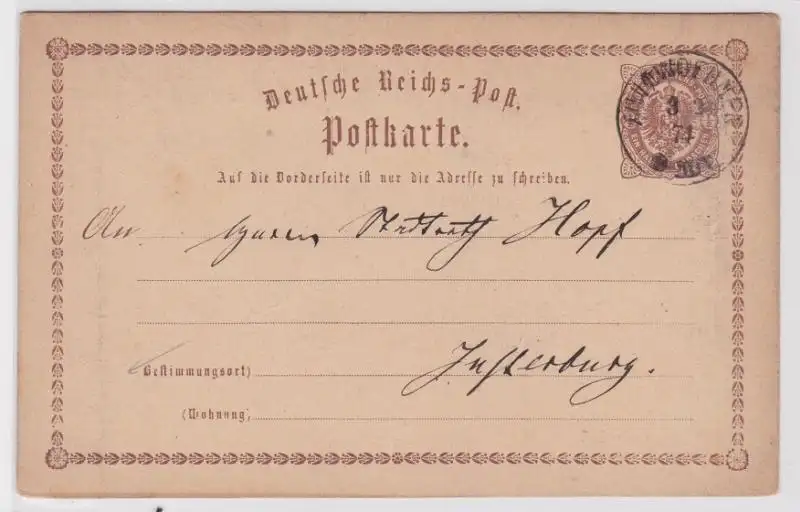 Deutsche Reichs-Post.
Postkarte.
Auf die Vorderseite ist nur die Adresse zu schreiben.
An Herrn Stadtrath Hopf
Insterburg.
(Bestimmungsort)
(Wohnung)
3
74